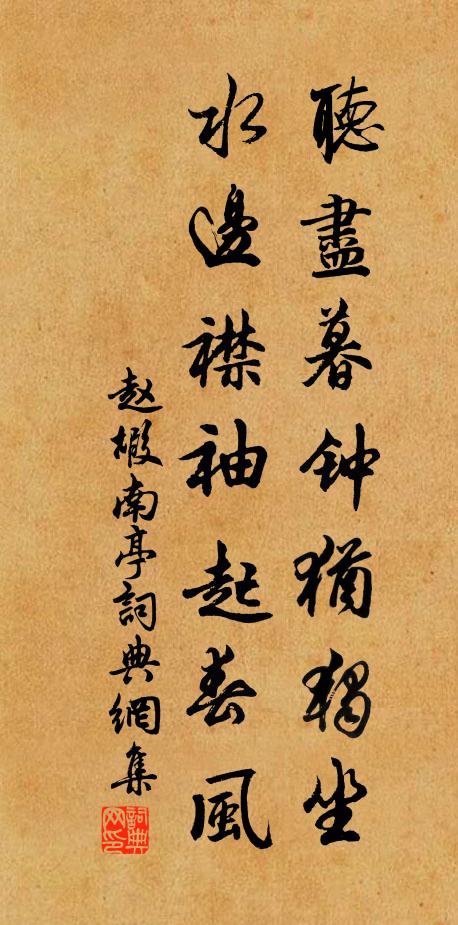 聽盡暮钟猶獨坐
水邊襟袖起春風
赵嘏南亭詞典網集
詞典网印